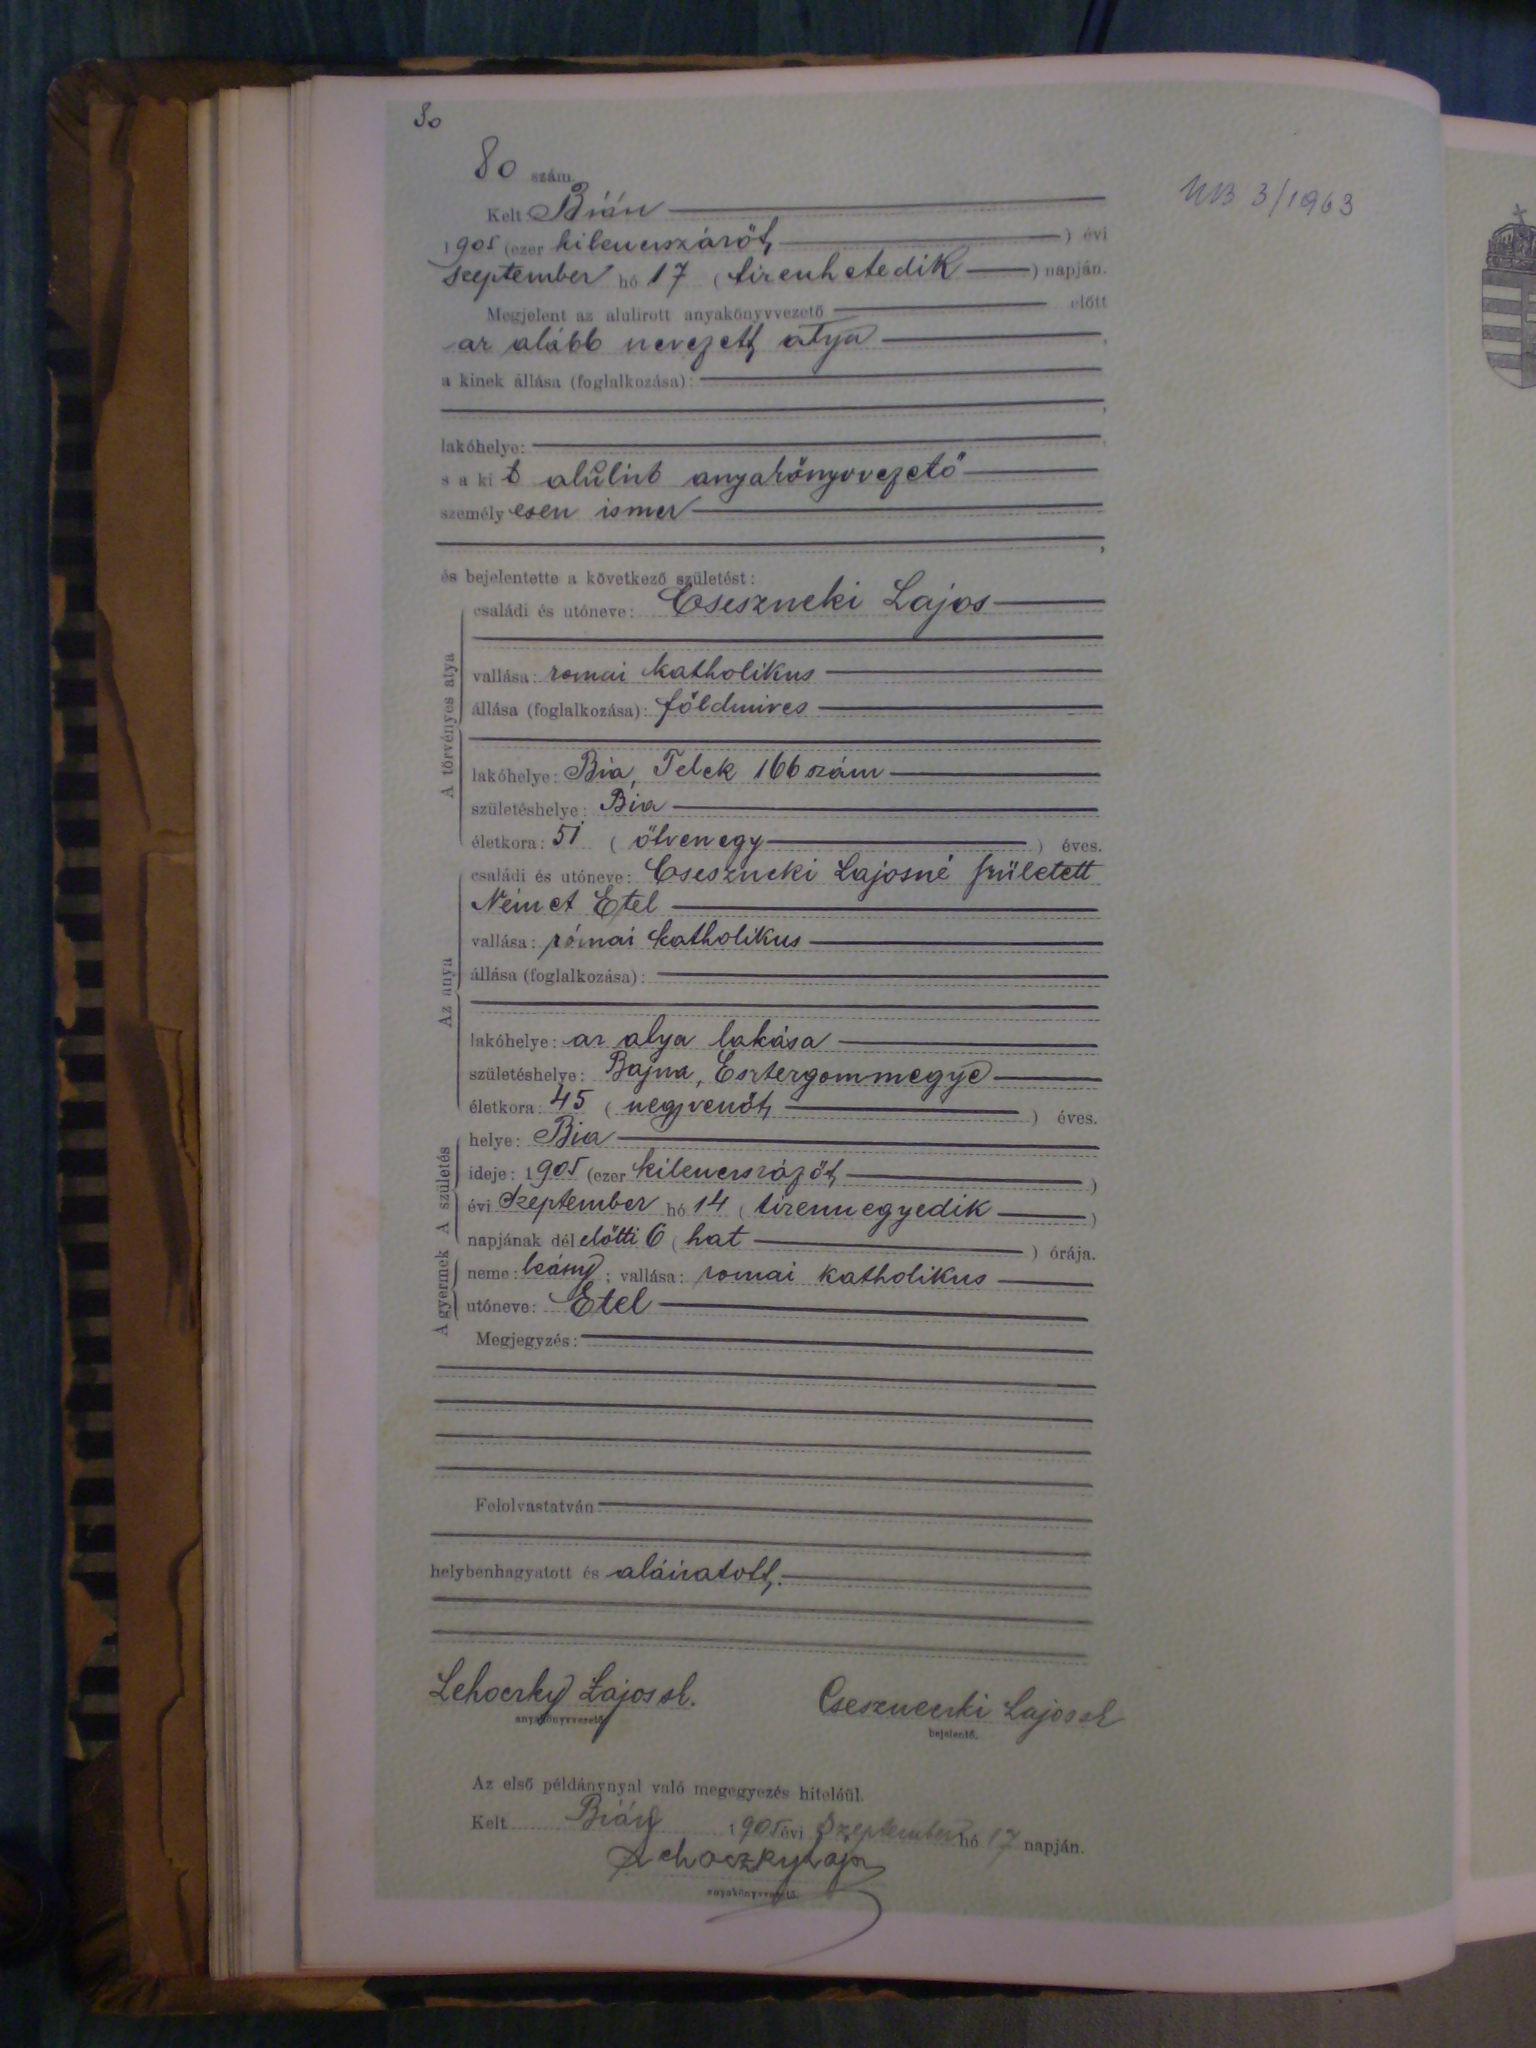 80
80 szám.
Kelt Bián
1905 (ezer kilencszázöt) évi
szeptember hó 17 (tizenhetedik) napján.
Megjelent az alulirott anyakönyvvezető előtt
az alább nevezett atya,
a kinek állása (foglalkozása):
lakóhelye:
s a kit alulirt anyakönyvvezető
személyesen ismer
és bejelentette a következő születést:
A törvényes atya
családi és utóneve: Cseszneki Lajos
vallása: romai katholikus
állása (foglalkozása): földmives
lakóhelye: Bia, Telek 166 szám
születéshelye: Bia
életkora: 51 (ötvenegy) éves.
Az anya
családi és utóneve: Cseszneki Lajosné született
Német Etel
vallása: római katholikus
állása (foglalkozása):
lakóhelye: az atya lakása
születéshelye: Bajna, Esztergommegye
életkora: 45 (negyvenöt) éves.
A születés
helye: Bia
ideje: 1905 (ezer kilencszázöt)
évi szeptember hó 14 (tizennegyedik)
napjának délelőtti 6 (hat) órája.
A gyermek
neme: leány; vallása: romai katholikus
utóneve: Etel
Megjegyzés:
Felolvastatván
helybenhagyatott és aláiratott.
Lehoczky Lajos sk. Csesznecki Lajos sk
anyakönyvvezető. bejelentő.
Az első példánynyal való megegyezés hiteléül.
Kelt Bián 1905 évi szeptember hó 17 napján.
Lehoczky Lajos
anyakönyvvezető.
3/1963